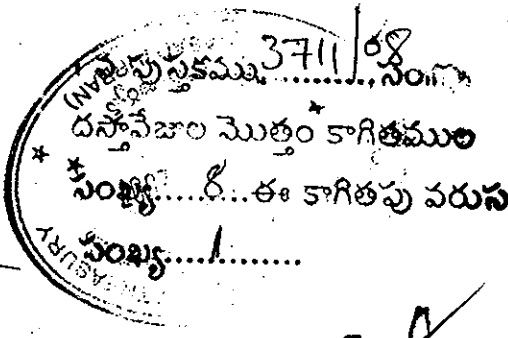 వ పుస్తకము 3711/08 .........., సం॥
దస్తావేజుల మొత్తం కాగితముల
సంఖ్య......8...ఈ కాగితపు వరుస
సంఖ్య.....1........